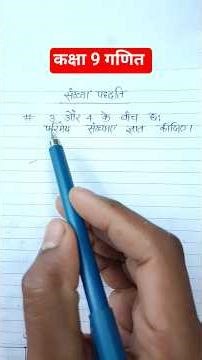 कक्षा 9 गणित
संख्या पद्धति
# 3 और 4 के बीच छः
परिमेय संख्याएं ज्ञात कीजिए।